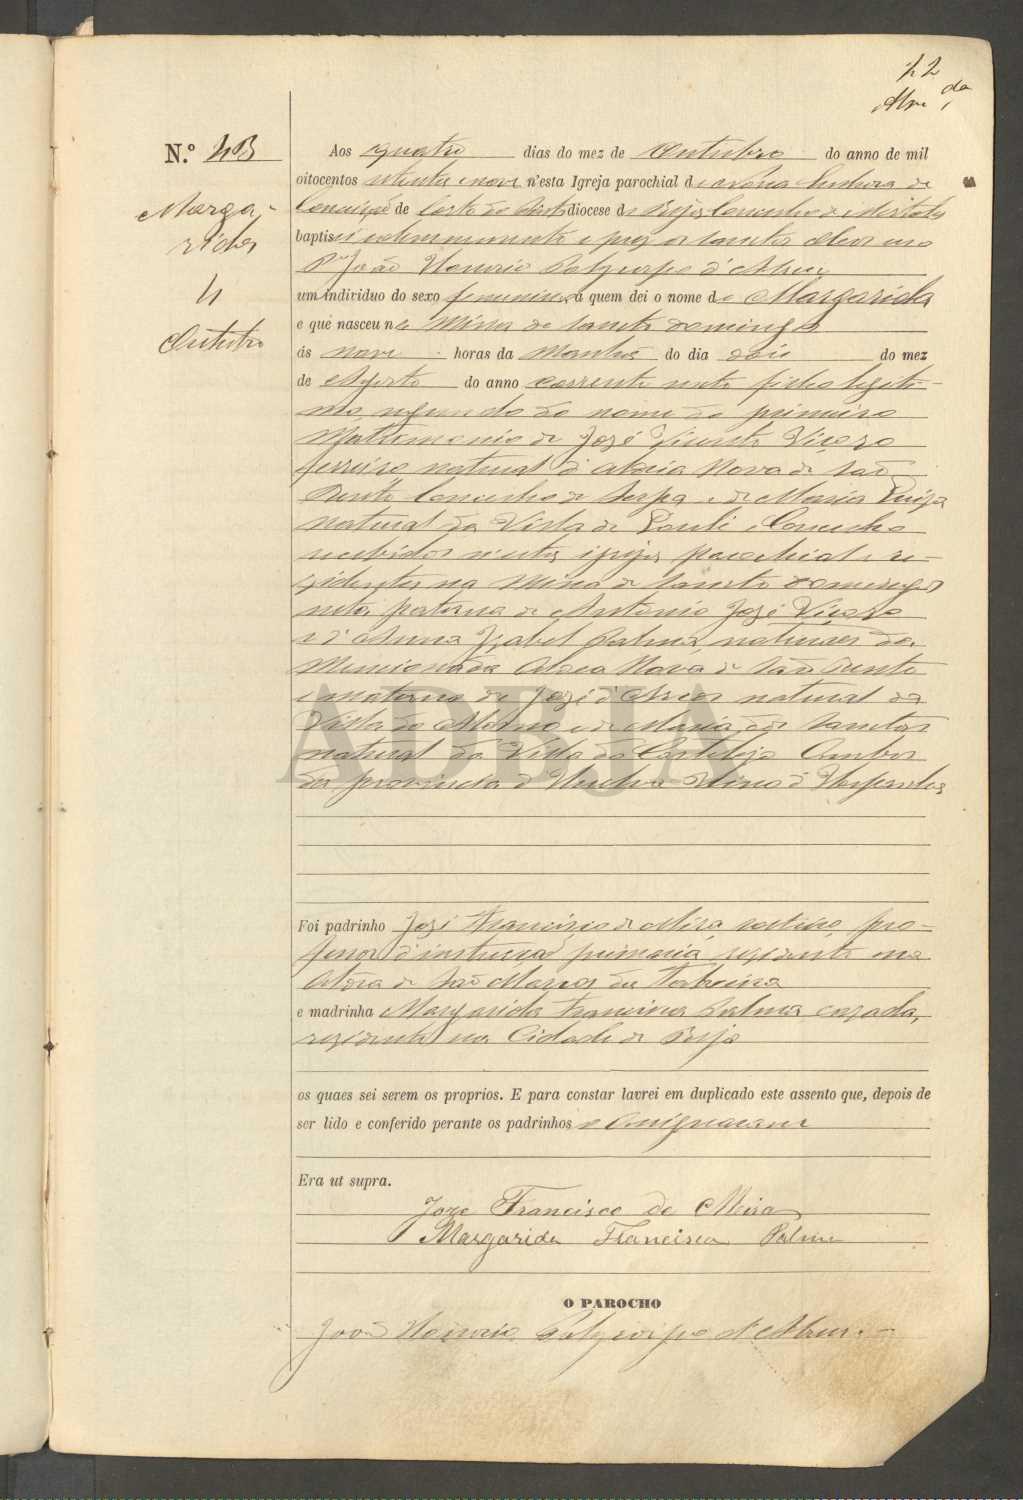 22
N.º 43
Marga-
rida
4
Outubro
Aos quatro dias do mez de Outubro do anno de mil
oitocentos setenta e nove n'esta Igreja parochial de Nossa Senhora da
Conceição de Corte do Pinto diocese de Beja Concelho de Mertola
baptisei solemnemente e puz os santos oleos eu o
P.e João Honorio Polycarpo d'Abreu
um individuo do sexo femenino a quem dei o nome de Margarida
e que nasceu na Mina de Santo Domingos
ás nove horas da Manhã do dia dois do mez
de Agosto do anno corrente filha legiti-
ma, segunda do nome do primeiro
Matrimonio de José Vicente
ferreiro natural d'Aldeia Nova de São
Bento Concelho de Serpa e de Maria Luiza
natural da Villa de e Concelho
recebidos n'esta igreja parochial e re-
sidentes na Mina de Santo Domingos
neta paterna de Antonio José
e d'Anna Izabel Palma, naturaes da
Mencionada Aldea Nova de São Bento
e materna de José natural da
Villa do e de Maria dos Santos
natural da Villa do Ambos
da provincia d'Huelva Reino d'Hespanha
Foi padrinho José Francisco de Meira, pro-
fessor d'instrucção primaria, rezidente na
Aldea de São Marcos da
e madrinha Margarida Francisca Palma cazada,
rezidente na Cidade de Beja
os quaes sei serem os proprios. E para constar lavrei em duplicado este assento que, depois de
ser lido e conferido perante os padrinhos e assignaram
Era ut supra.
Joze Francisco de Meira
Margarida Francisca Palma
O PAROCHO
João Honorio Polycarpo d'Abreu